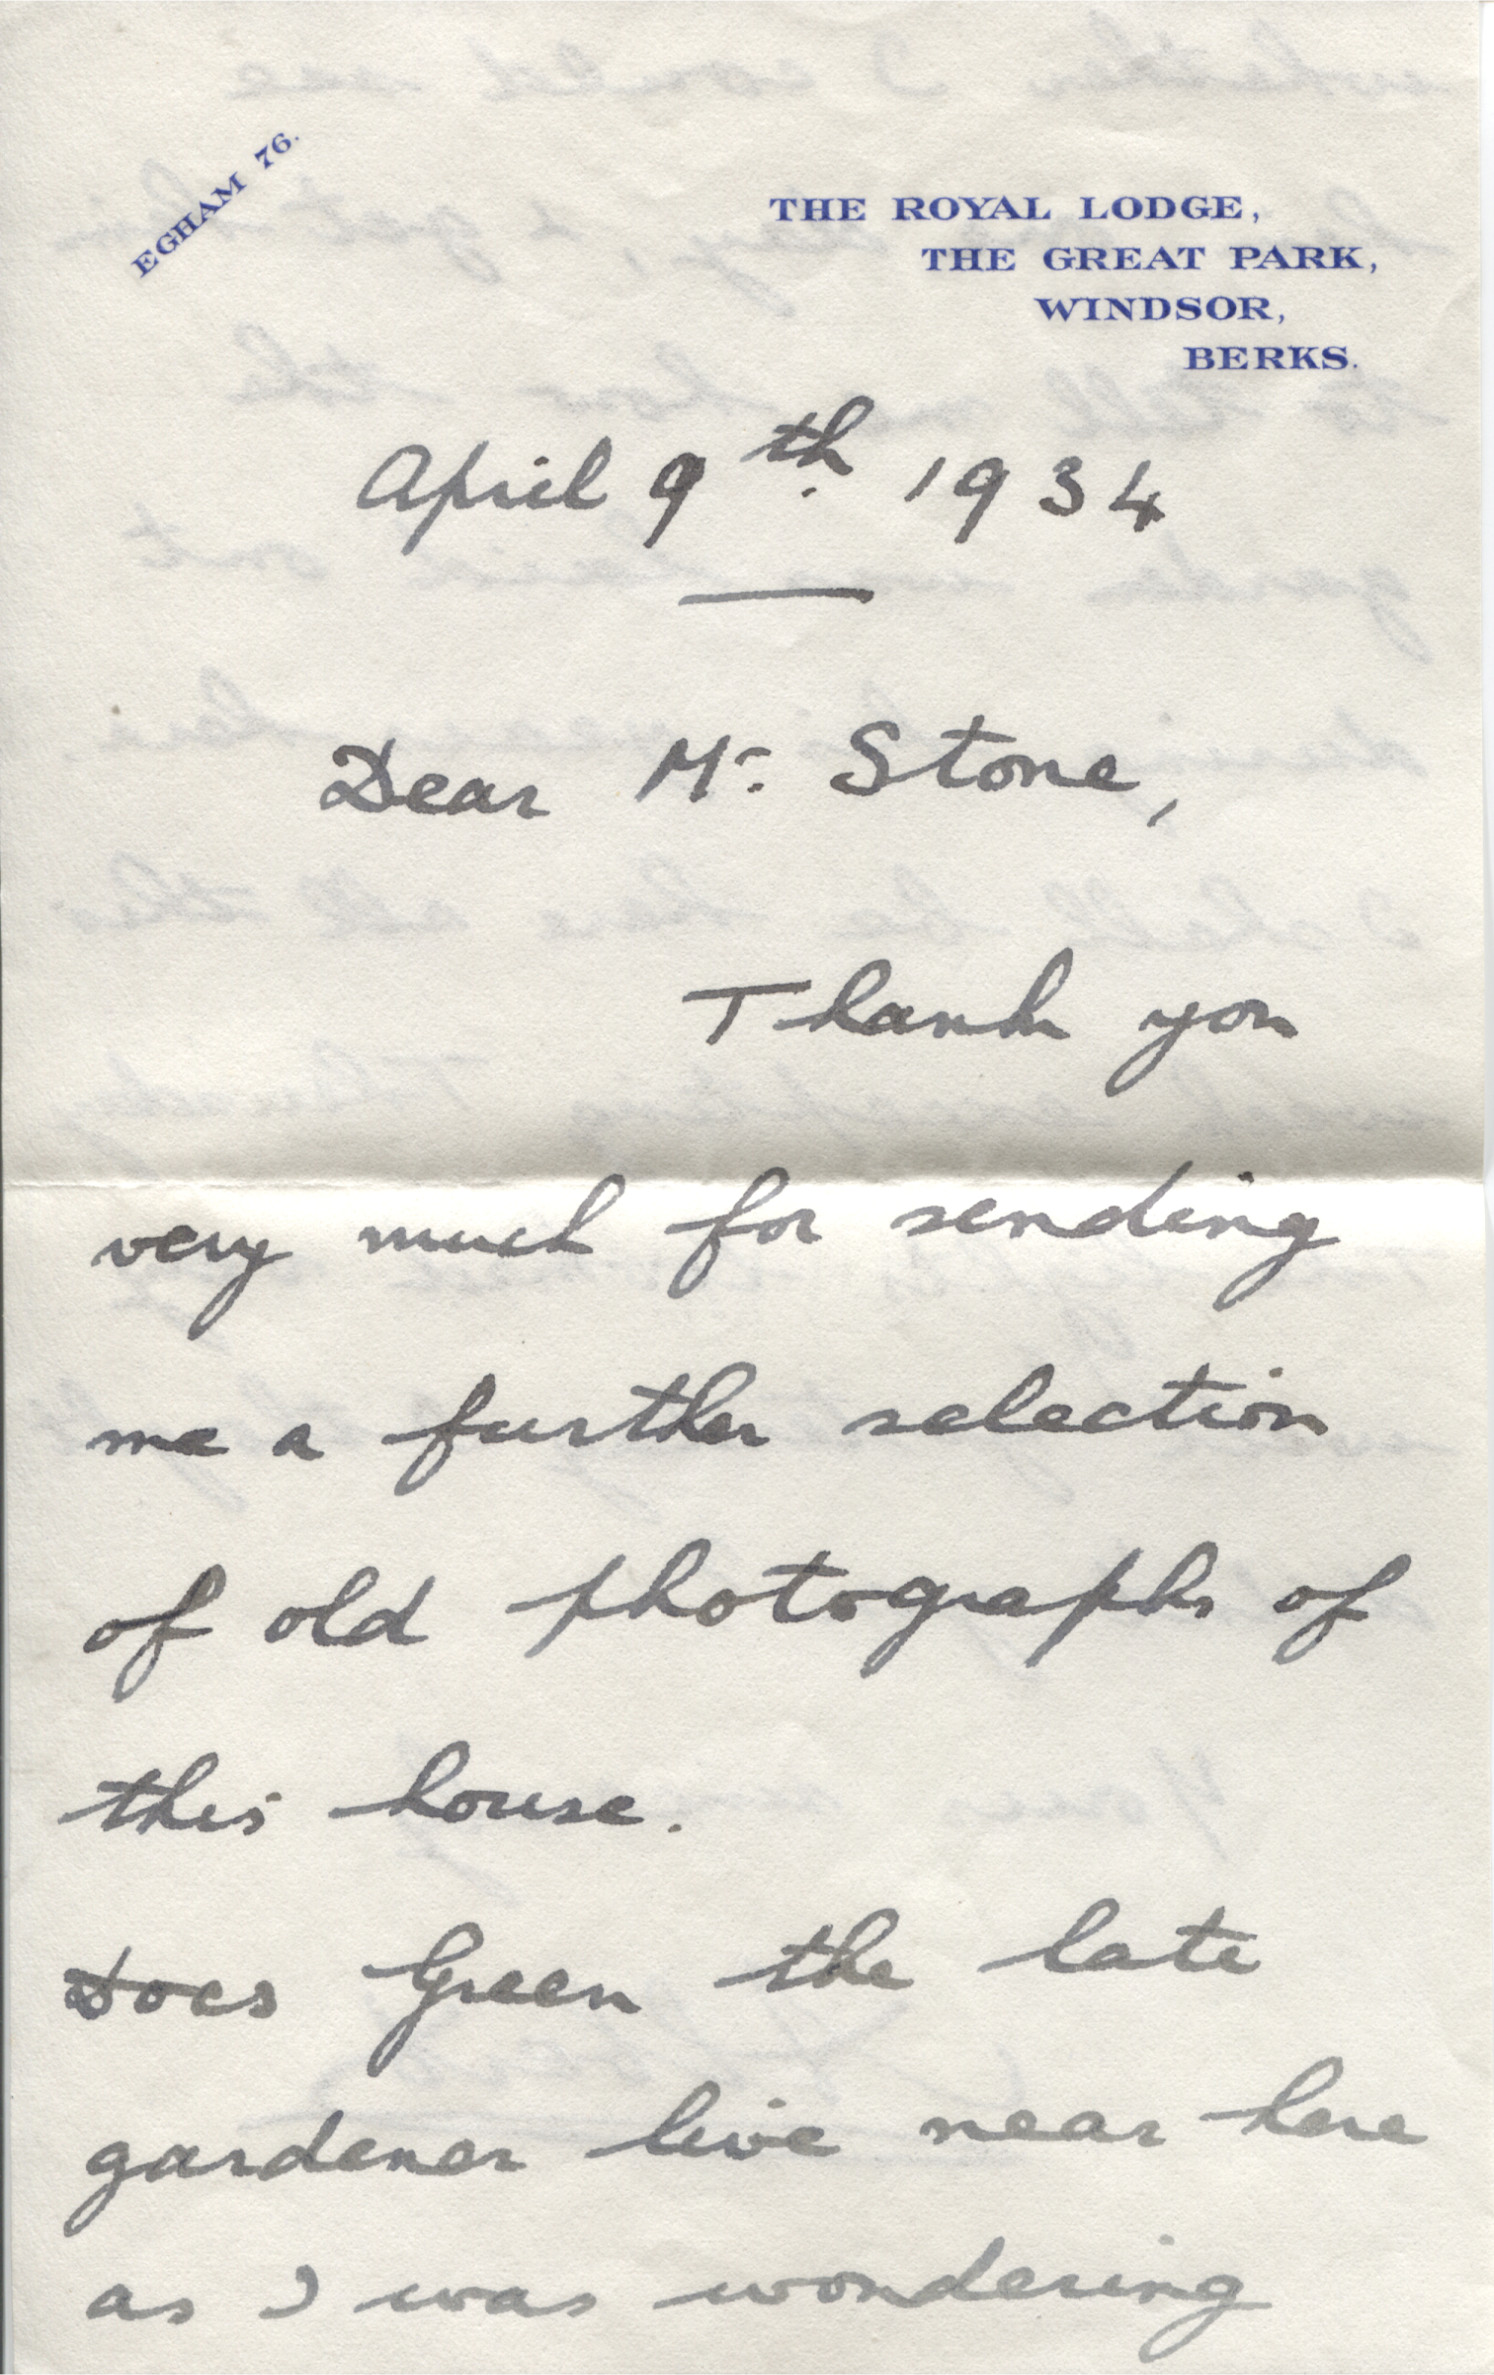 EGHAM 76.
THE ROYAL LODGE,
THE GREAT PARK,
WINDSOR,
BERKS.
April 9th. 1934
Dear Mr. Stone,
Thank you
very much for sending
me a further selection
of old photographs of
this house.
Does Green the late
gardener live near here
as I was wondering